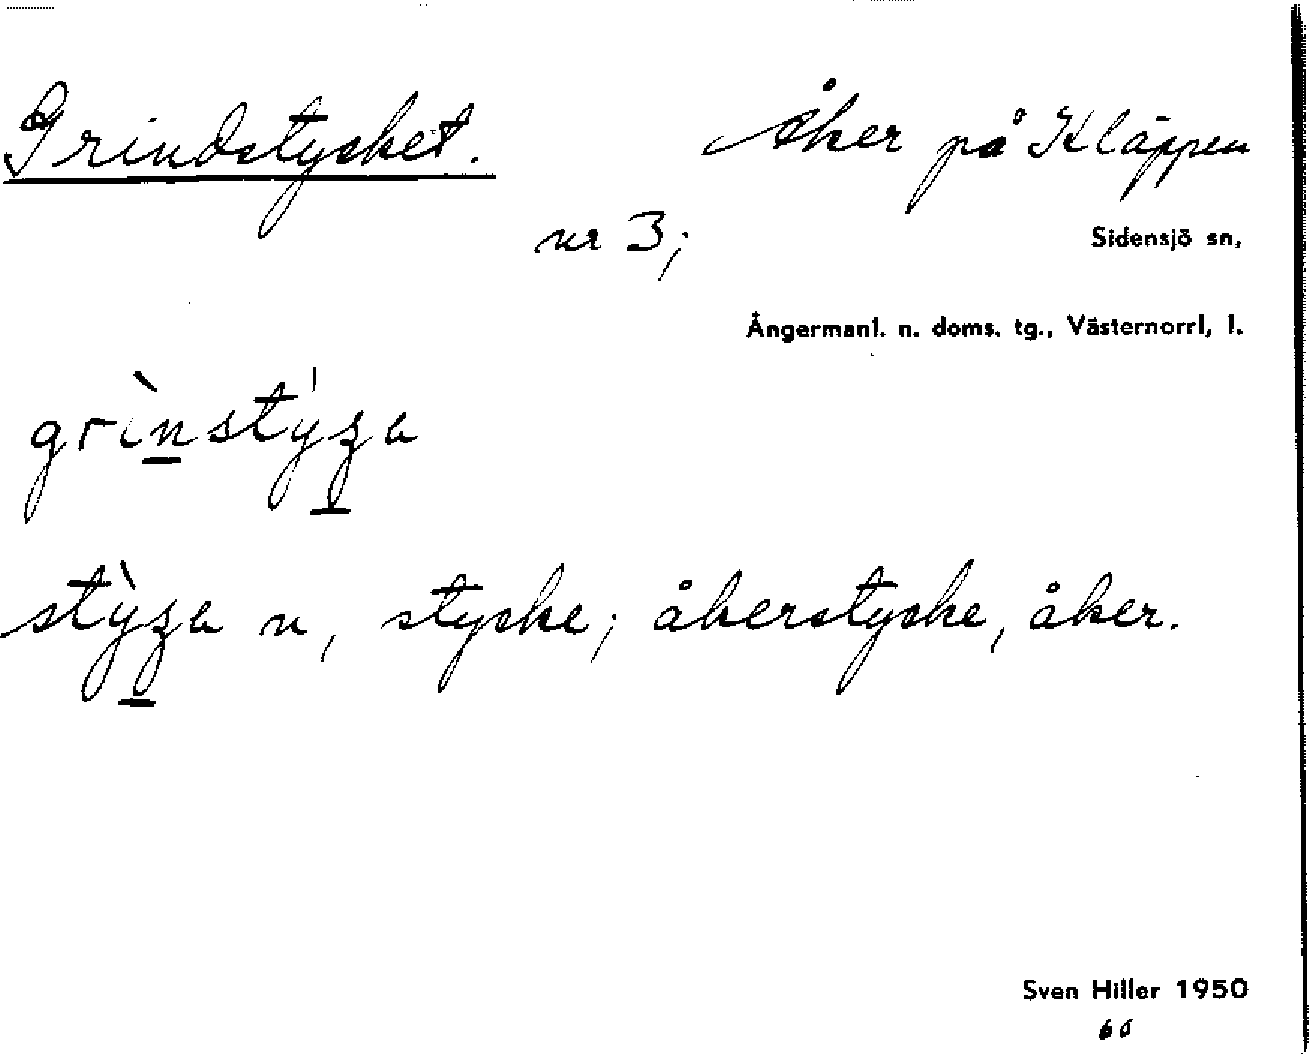 Grindstycket. Åker på Kläppen
nr 3; Sidensjö sn,
Ångermanl. n. doms. tg., Västernorrl, l.
grìnstýʒa
stỳʒa n, stycke; åkerstycke, åker.
Sven Hiller 1950